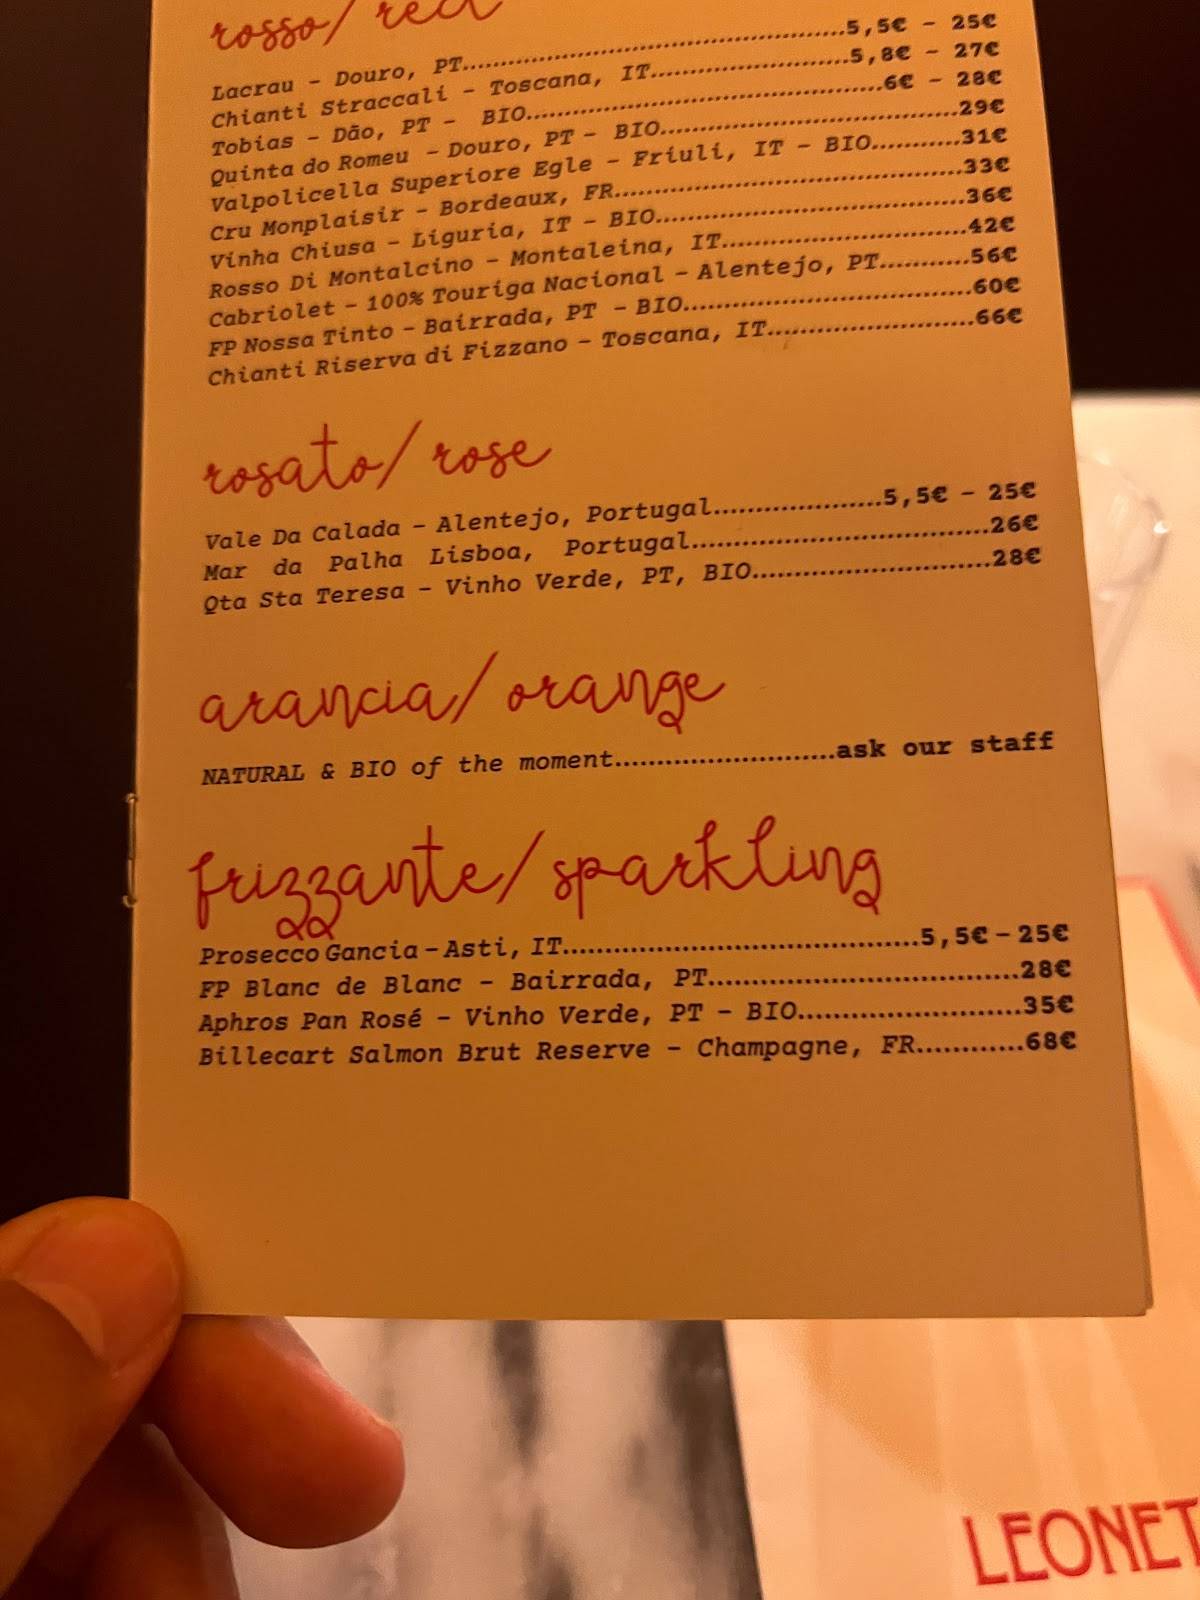 rosso/red
Lacrau - Douro, PT..........5,5€ - 25€
Chianti Straccali - Toscana, IT..........5,8€ - 27€
Tobias - Dão, PT - BIO..........6€ - 28€
Quinta do Romeu - Douro, PT - BIO..........29€
Valpolicella Superiore Egle - Friuli, IT - BIO..........31€
Cru Monplaisir - Bordeaux, FR..........33€
Vinha Chiusa - Liguria, IT - BIO..........36€
Rosso Di Montalcino - Montaleina, IT..........42€
Cabriolet - 100% Touriga Nacional - Alentejo, PT..........56€
FP Nossa Tinto - Bairrada, PT - BIO..........60€
Chianti Riserva di Fizzano - Toscana, IT..........66€
rosato/rose
Vale Da Calada - Alentejo, Portugal..........5,5€ - 25€
Mar da Palha Lisboa, Portugal..........26€
Qta Sta Teresa - Vinho Verde, PT, BIO..........28€
arancia/orange
NATURAL & BIO of the moment..........ask our staff
frizzante/sparkling
Prosecco Gancia - Asti, IT..........5,5€ - 25€
FP Blanc de Blanc - Bairrada, PT..........28€
Aphros Pan Rosé - Vinho Verde, PT - BIO..........35€
Billecart Salmon Brut Reserve - Champagne, FR..........68€
LEONET